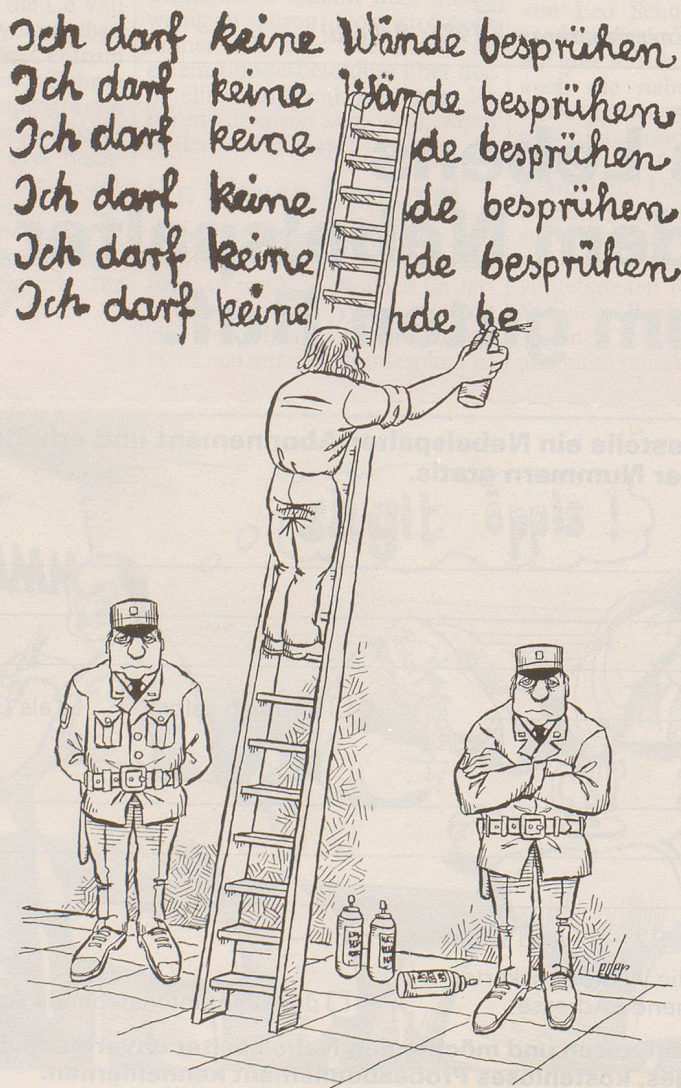 Ich darf keine Wände besprühen
Ich darf keine Wände besprühen
Ich darf keine nde besprühen
Ich darf keine nde besprühen
Ich darf keine nde besprühen
Ich darf keine nde be
eder